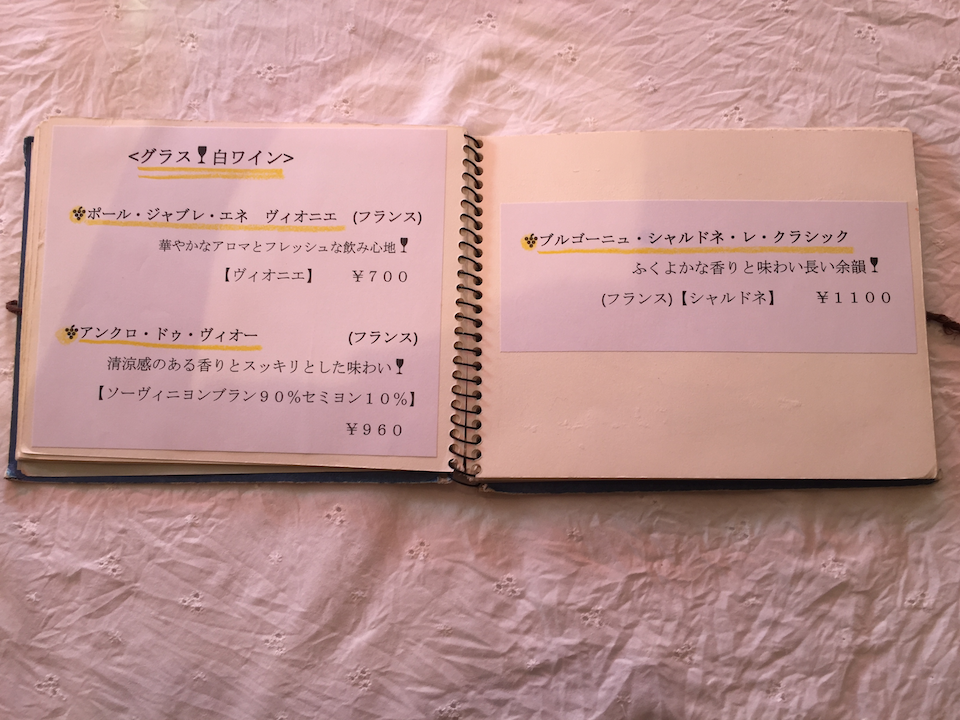 <グラス🍷白ワイン>
🍇ポール・ジャブレ・エネ　ヴィオニエ　(フランス)
華やかなアロマとフレッシュな飲み心地🍷
【ヴィオニエ】　￥７００
🍇アンクロ・ドゥ・ヴィオー　(フランス)
清涼感のある香りとスッキリとした味わい🍷
【ソーヴィニヨンブラン９０％セミヨン１０％】
￥９６０
🍇ブルゴーニュ・シャルドネ・レ・クラシック
ふくよかな香りと味わい長い余韻🍷
(フランス)【シャルドネ】　￥１１００